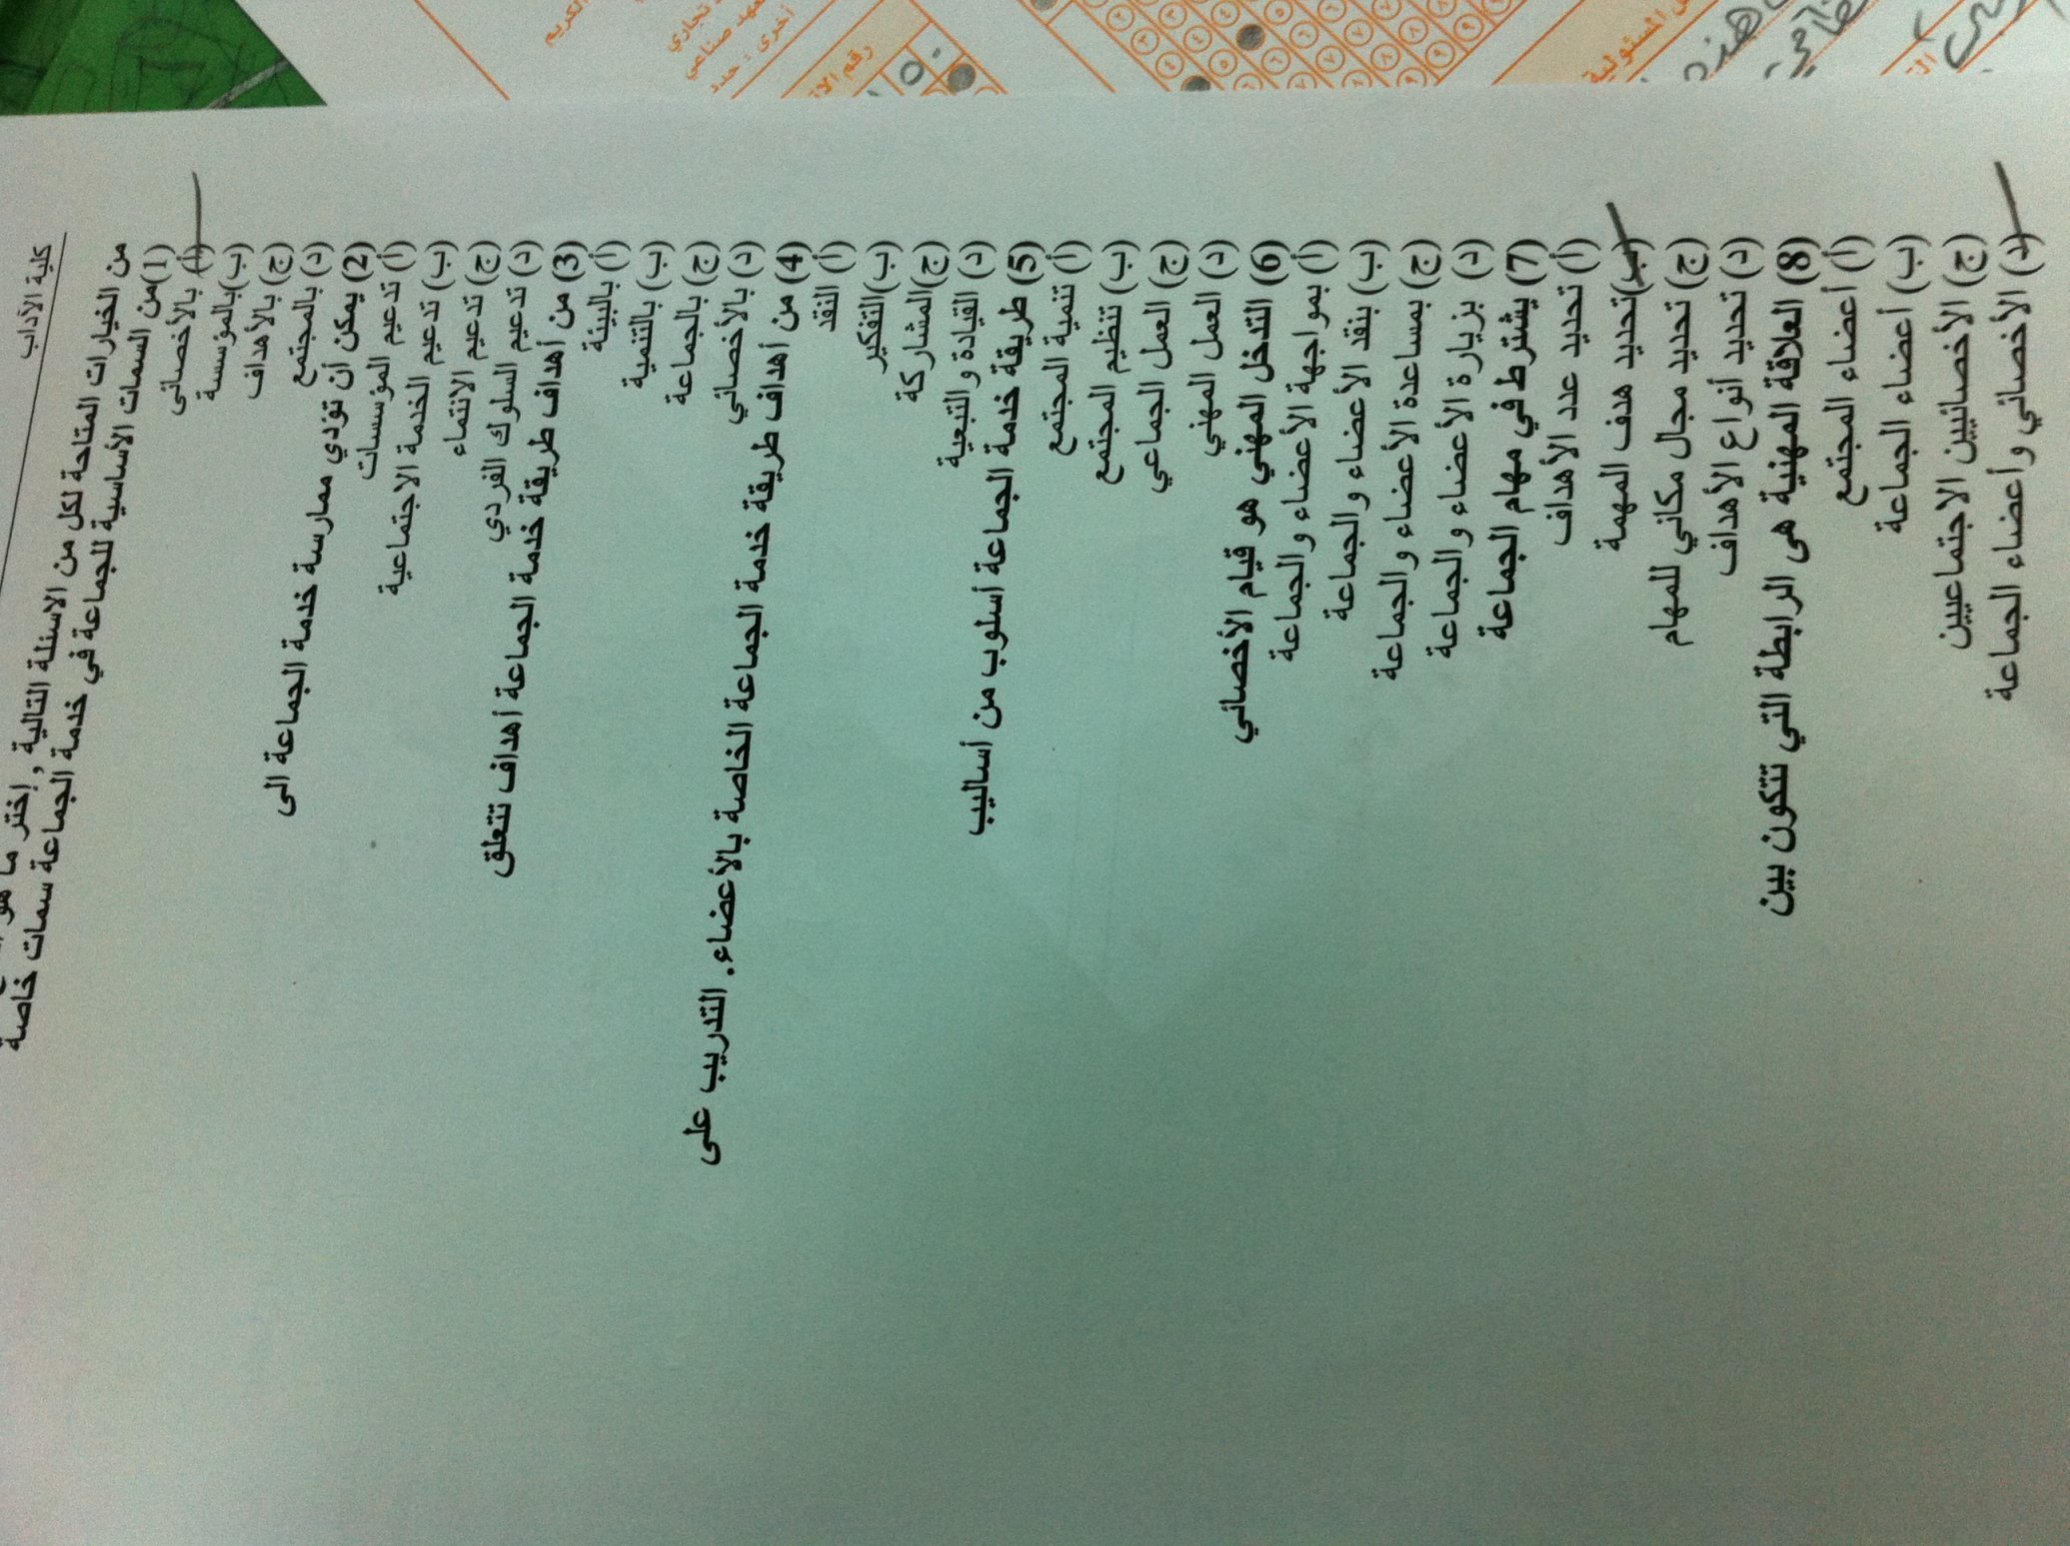 كلية الآداب
من الخيارات المتاحة لكل من الاسئلة التالية , إختر ما هو
(1)من السمات الأساسية للجماعة في خدمة الجماعة سمات خاصة
(أ) بالأخصائى
(ب)بالمؤسسة
(ج) بالأهداف
(د) بالمجتمع
(2) يمكن أن تؤدي ممارسة خدمة الجماعة الى
(أ) تدعيم المؤسسات
(ب) تدعيم الخدمة الاجتماعية
(ج) تدعيم الانتماء
(د) تدعيم السلوك الفردي
(3) من أهداف طريقة خدمة الجماعة أهداف تتعلق
(أ) بالبيئة
(ب) بالتنمية
(ج) بالجماعة
(د) بالأخصائي
(4) من أهداف طريقة خدمة الجماعة الخاصة بالأعضاء. التدريب على
(أ) النقد
(ب)التفكير
(ج)المشاركة
(د) القيادة والتبعية
(5) طريقة خدمة الجماعة أسلوب من أساليب
(أ) تنمية المجتمع
(ب) تنظيم المجتمع
(ج) العمل الجماعي
(د) العمل المهني
(6) التدخل المهني هو قيام الأخصائي
(أ) بمواجهة الأعضاء والجماعة
(ب) بنقد الأعضاء والجماعة
(ج) بمساعدة الأعضاء والجماعة
(د) بزيارة الأعضاء والجماعة
(7) يشترط في مهام الجماعة
(أ) تحديد عدد الأهداف
(ب)تحديد هدف المهمة
(ج) تحديد مجال مكاني للمهام
(د) تحديد أنواع الأهداف
(8) العلاقة المهنية هى الرابطة التي تتكون بين
(أ) أعضاء المجتمع
(ب) أعضاء الجماعة
(ج) الأخصائيين الاجتماعيين
(د) الأخصائي وأعضاء الجماعة
الكريم
تجاري
معهد صناعي
أخرى : حدد